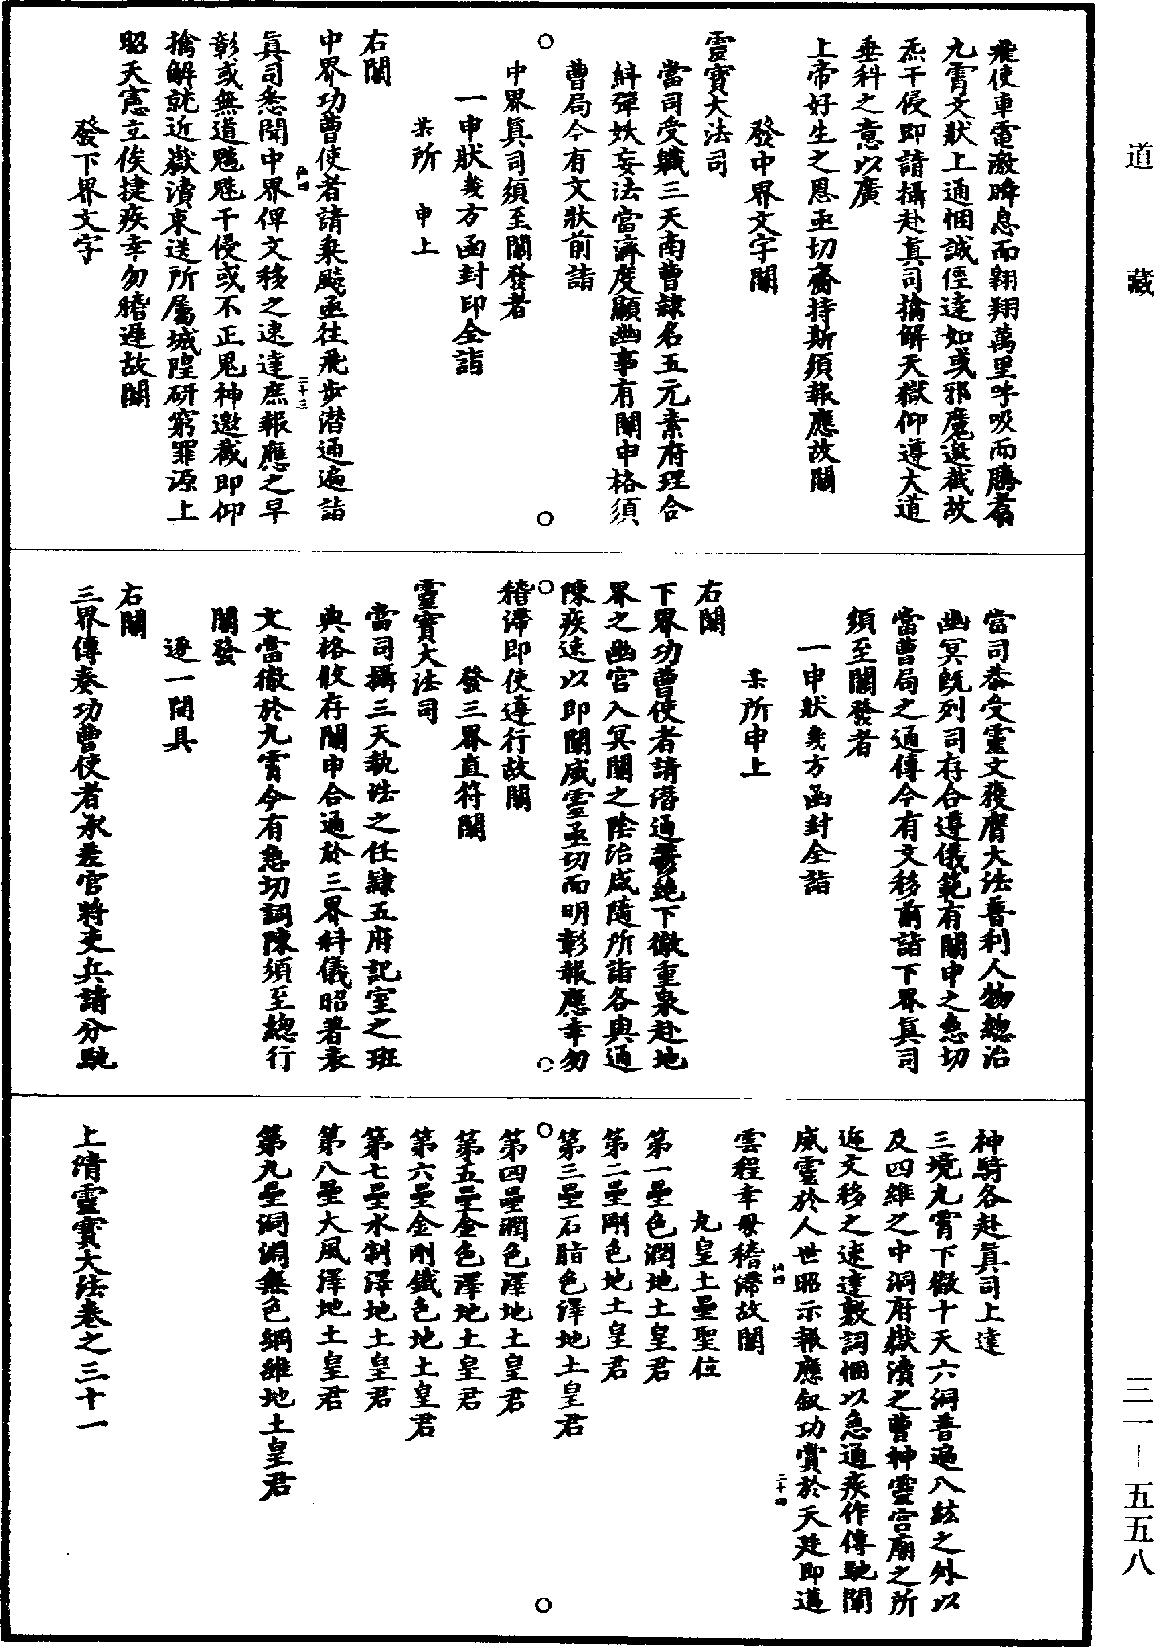 道藏
飛使車電激瞬息而翱翔萬里呼吸而騰翥
九霄文狀上通悃誠徑達如或邪魔遮截故
炁干侵即請攝赴真司擒解天獄仰遵大道
垂科之意以廣
上帝好生之恩亟切齎持斯須報應故關
發中界文字關
靈寶大法司
當司受職三天南曹隸名五元素府理合
糾彈妖妄法當濟度顯幽事有關申格須
曹局今有文狀前詣
中界真司須至關發者
一申狀幾方函封印全詣
某所　申上
右關
中界功曹使者請乘飈亟往飛步潛通遍詣
真司悉聞中界俾文移之速達庶報應之早
彰或無道魍魎干侵或不正鬼神邀截即仰
擒解就近嶽瀆東送所屬城隍研窮罪源上
昭天憲立俟捷疾幸勿稽遲故關
發下界文字
當司恭受靈文獲膺大法普利人物總治
幽冥既列司存合遵儀範有關申之急切
當曹局之通傳今有文移前詣下界真司
須至關發者
一申狀幾方函封全詣
某所申上
右關
下界功曹使者請潛通鬱絕下徹重泉赴地
界之幽官入冥關之陰治咸隨所詣各與通
陳疾速以即關威靈亟切而明彰報應幸勿
稽滯即使遵行故關
發三界直符關
靈寶大法司
當司攝三天執法之任隸五府記室之班
典格攸存關申合通於三界科儀昭著表
文當徹於九霄今有急切詞陳須至總行
關發
逐一開具
右關
三界傳奏功曹使者承差官將吏兵請分馳
神騎各赴真司上達
三境九霄下徹十天六洞普遍八紘之外以
及四維之中洞府嶽瀆之曹神靈宮廟之所
近文移之速達敷詞悃以急通疾作傳馳闡
威靈於人世昭示報應敘功賞於天廷即邁
雲程幸毋稽滯故關
九皇土壘聖位
第一壘色潤地土皇君
第二壘剛色地土皇君
第三壘石脂色澤地土皇君
第四壘潤色澤地土皇君
第五壘金色澤地土皇君
第六壘金剛鐵色地土皇君
第七壘水制澤地土皇君
第八壘大風澤地土皇君
第九壘洞淵無色綱維地土皇君
上清靈寶大法卷之三十一
三一—五五八